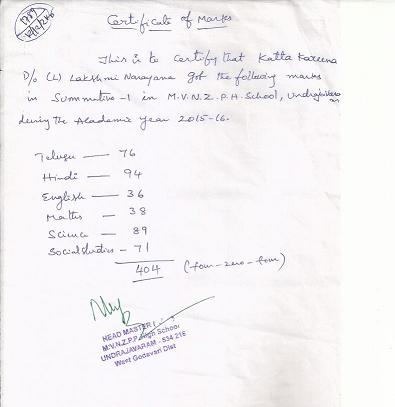 Certificate of Marks
This is to certify that Katta Kareena
D/o (L) Lakshmi Narayana got the following marks
in Summative-1 in M.V.N.Z.P.H.School,
during the Academic Year 2015-16.
Telugu — 76
Hindi — 94
English — 36
Maths — 38
Science — 89
Social studies - 71
404 (four-zero-four)
HEAD MASTER
M.V.N.Z.P.P. High School
UNDRAJAVARAM - 534 216
West Godavari Dist